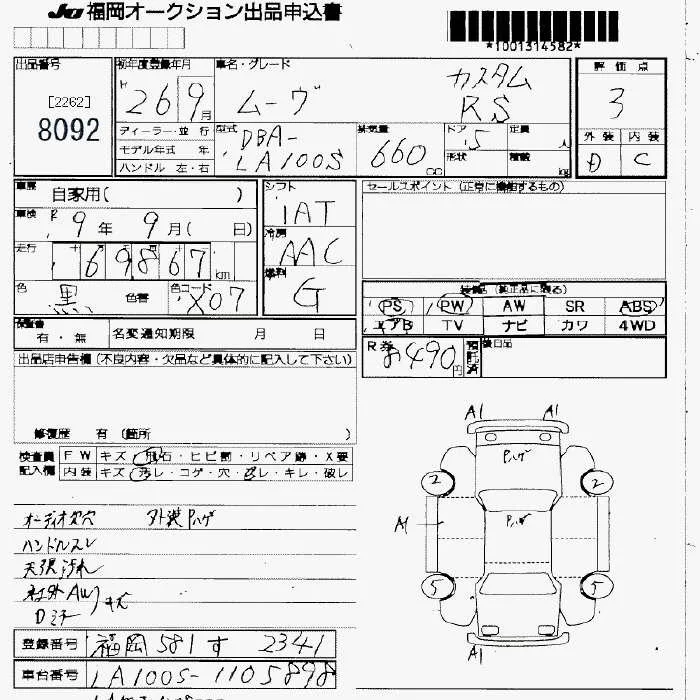 JU 福岡オークション出品申込書
*1001314582*
出品番号
[2262]
8092
初年度登録年月
H 26 9月
車名・グレード
ムーヴ
カスタム
RS
評価点
3
外装 内装
D C
ディーラー・並行
モデル年式 年
ハンドル 左・右
型式
DBA-
LA100S
排気量
660 cc
ドア
5
形状
定員
人
積載
kg
車歴 自家用( )
車検 R 9年 9月( 日)
走行 69867 km
色 黒 色替 色コード X07
シフト
IAT
冷房
AAC
燃料
G
セールスポイント (正常に機能するもの)
装備品 (純正品に限る)
PS PW AW SR ABS
エアB TV ナビ カワ 4WD
保証書
有・無
名変通知期限 月 日
R券 490円
預託済
後日品
出品店申告欄 (不良内容・欠品など具体的に記入して下さい)
修復歴 有 (箇所 )
検査員
記入欄
FW キズ・飛石・ヒビ割・リペア跡・X要
内装 キズ・汚レ・コゲ・穴・ビレ・キレ・破レ
オーディオ欠穴 外装Pハゲ
ハンドルスレ
天張汚れ
社外AW
Dミラー キズ
A1 A1
Pハゲ
2 2
A1
Pハゲ
5 5
A1
登録番号 福岡 581 す 2341
車台番号 LA100S-1105898